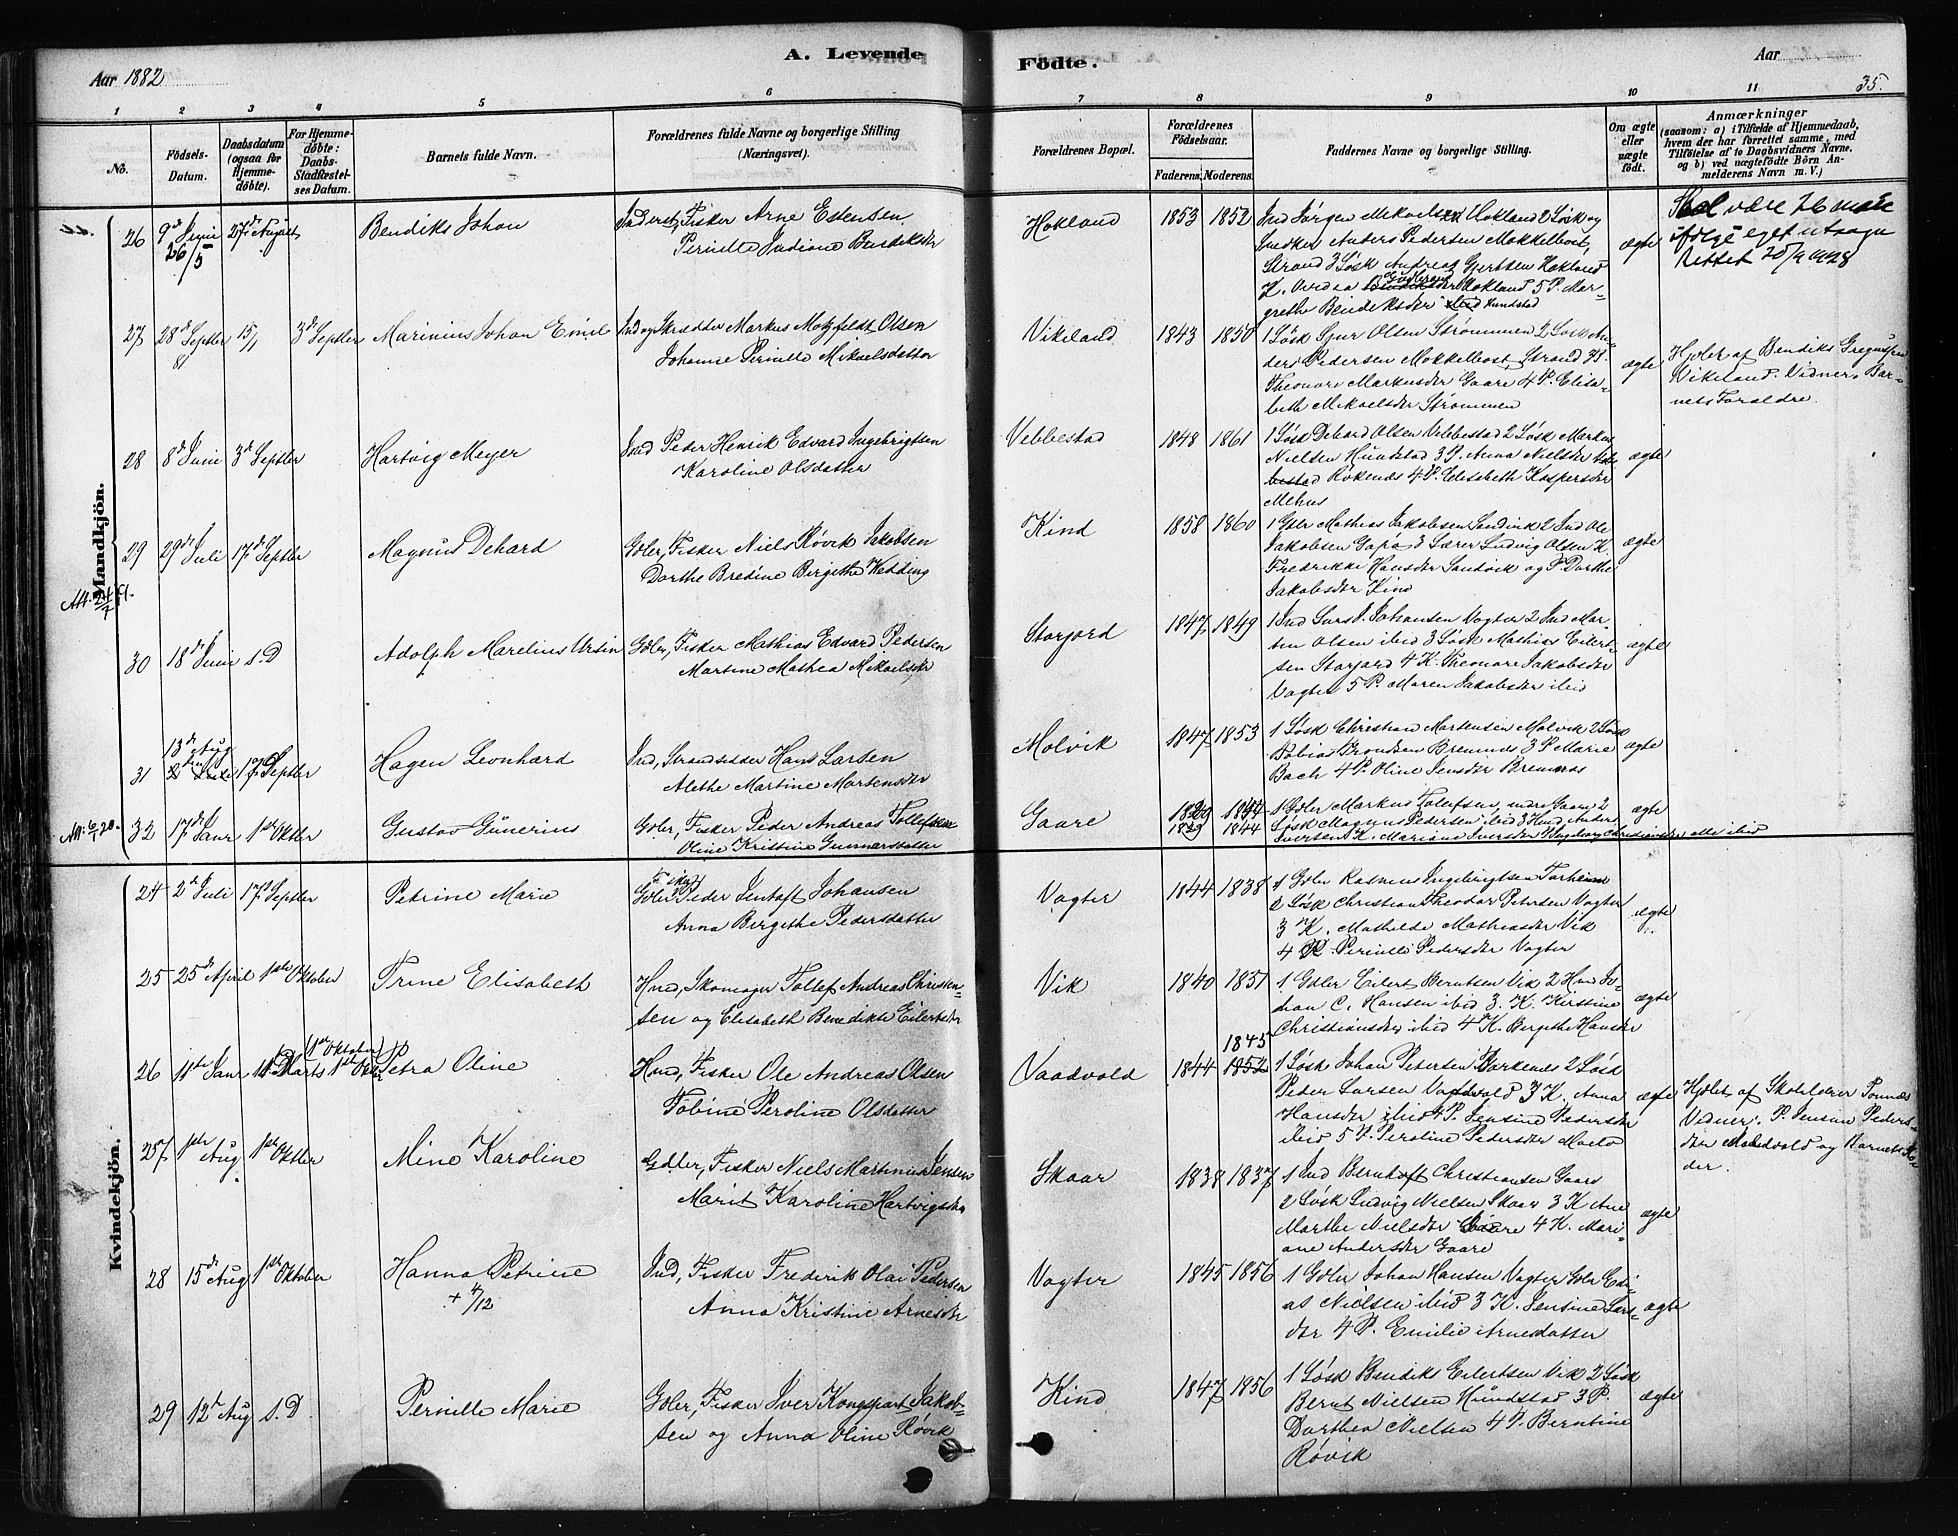 A. Levende
Födte.
Aar 1882
Aar
35.
1 2 3 4 5 6 7 8 9 10 11
No.
Födsels-Datum.
Daabsdatum (ogsaa för Hjemmedöbte).
For Hjemmedöbte: Daabs-Stadfæstelses Datum.
Barnets fulde Navn.
Forældrenes fulde Navne og borgerlige Stilling (Næringsvei).
Forældrenes Bopæl.
Forældrenes Födselsaar.
Faderens. Moderens.
Faddernes Navne og borgerlige Stilling.
Om ægte eller uægte födt.
Anmærkninger (saasom: a) i Tilfælde af Hjemmedaab, hvem der har forrettet samme, med Tilföielse af to Daabsvidners Navne, og b) ved uægtefödte Börn Anmelderens Navn m. V.)
Mandkjön.
26 9de Juni 26/5 27de August Bendiks Johan
Inderst, Fisker Arne Estensen
Pernille Indiane Bendiksdr
Hokland 1853 1852
Ind Jørgen Mikaelsen Hokland 2 Løsk og
Snedker Anders Pedersen Mokkelbost,
Strand 3 Løsk Andreas Gjertsen Hokland
Hokland 5 P. Mar-
grethe Bendiksdr Hundstad
ægte
Skal være 26 mai
ifølge eget utsagn
Rettet 20/9 1928
27 28de Septbr 81 15/1 3de Septbr Marinius Johan Emil
Ind og Skrædder Markus Motzfeldt Olsen
Johanne Pernille Mikaelsdatter
Vikeland 1843 1850
1 Løsk Sjur Olsen Strømmen 2 Løsk An-
ders Pedersen Mokkelbost Strand
Theonore Markusdr Gaare 4 P. Elisa-
beth Mikaelsdr Strømmen
ægte
Hjdbt af Bendiks Gregusen
Vikeland. Vidner, Bar-
nets Forældre.
28 8de Juni 3de Septbr Hartvig Meyer
Ind Peder Henrik Edvard Ingebrigtsen
Karoline Olsdatter
Vebbestad 1848 1861
1 Løsk Dehard Olsen Vebbestad 2 Løsk Markus
Nielsen Hundstad 3 P. Anna Nielsdr
Røkenes 4 P. Elisabeth Kaspersdr
Mehus
ægte
29 29de Juli 17de Septbr Magnus Dehard
Gdbr, Fisker Niels Røvik Jakobsen
Dorthe Bredine Birgithe Hedding
Kind 1858 1860
1 Gdbr Mathias Jakobsen Sandvik 2 Ind Ole
Jakobsen Gapø 3 Lærer Ludvig Olsen K.
Fredrikke Hansdr Sandvik og P. Dorthe
Jakobsdr Kind
ægte
30 18de Juni s.D Adolph Marelius Ursin
Gdbr, Fisker Mathias Edvard Pedersen
Martine Mathea Mikaelsdr
Storjord 1847 1849
1 Ind Lars P. Johansen Vogter 2 Ind Mar-
tin Olsen ibid 3 Løsk Mathias Eilert-
sen Storjord 4 K. Theonore Jakobsdr
Vogter 5 P. Maren Jakobsdr ibid
ægte
31 13de Aug 17de Septbr Hagen Leonhard
Ind, Strandsidder Hans Larsen
Alethe Martine Mortensdr
Molvik 1847 1853
1 Løsk Christian Mortensen Molvik 2 Løsk
Tobias Brondsen Bremnes 3 P Marie
Bach 4 P. Oline Jensdr Bremnes
ægte
32 17de Janr 1ste Oktbr Gustav Günerius
Gdbr, Fisker Peder Andreas Tollefsen
Oline Kristine Gunnarsdatter
Gaare 1829 1844
1 Gdbr Markus Tollefsen indre Gaare 2
Løsk Magnus Pedersen ibid 3 Hmd Anders
Iversen K. Mariane Iversdr Ingeborg Christiansdr ibid
ægte
Kvindekjön.
24 2de Juli 17de Septbr Petrine Marie
Fisker
Gdbr Peder Jentoft Johansen
Anna Birgithe Pedersdatter
Vogter 1844 1838
1 Gdbr Rasmus Ingebrigtsen
2 Løsk Christian Theodor Petersen Vogter
3 K. Mathilde Mathiasdr Vik
4 P. Pernille Pedersdr Vogter
ægte
25 25de April 1ste Oktober Trine Elisabeth
Hmd, Skomager Tollef Andreas Christen-
sen og Elisabeth Benedikte Eilertsdr
Vik 1840 1851
1 Gdbr Eilert Berntsen Vik 2 Hmd Jo-
han C. Hansen ibid 3. K. Kirstine
Christiansdr ibid 4 K. Bergithe Hansdr
ægte
26 11te Janr Marts (1ste Oktober) Petra Oline
Hmd, Fisker Ole Andreas Olsen
Tobine Peroline Olsdatter
Vaadvold 1844 1852 1845
1 Løsk Johan Petersen Borkenes 2 Løsk
Peder Larsen Vaadvold 3 K. Anna
Hansdr ibid 4 P. Jensine Pedersdr
ibid 5 P. Peroline Pedersdr
ægte
Hjdbt af Skolelærer Tonnes
Vidner: P. Jensine Peders-
dr Vaadvold og Barnets Mo-
der.
27 1ste Aug. 1ste Oktbr Mine Karoline
Gdbr, Fisker Niels Martinius Jensen
Marit Karoline Hartvigsdr
Skaar 1838 1837
1 Ind Bernhoft Christiansen Gaare
2 Løsk Ludvig Nielsen Skaar 3 K Ane
Marthe Nielsdr Gaare 4 K. Mari-
ane Andersdr Gaare
ægte
28 15de Aug 1ste Oktober Hanna Petrine
+ 4/12
Ind, Fisker Frederik Olai Pedersen
Anna Kristine Arnesdr
Vogter 1845 1856
1 Gdbr Johan Hansen Vogter Gdbr Edi-
as Nielsen ibid 3 K. Jensine Lars-
dr 4 P. Emilie Arnesdatter
ægte
29 12te Aug s.D. Pernille Marie
Gdbr, Fisker Iver Kongspart Jakob-
sen og Anna Oline Røvik
Kind 1847 1856
1 Løsk Bendiks Eilertsen Vik 2 Løsk
Bernt Nielsen Hundstad 3 P.
Dorthea Nielsen 4 P. Berntine
Røvik
ægte